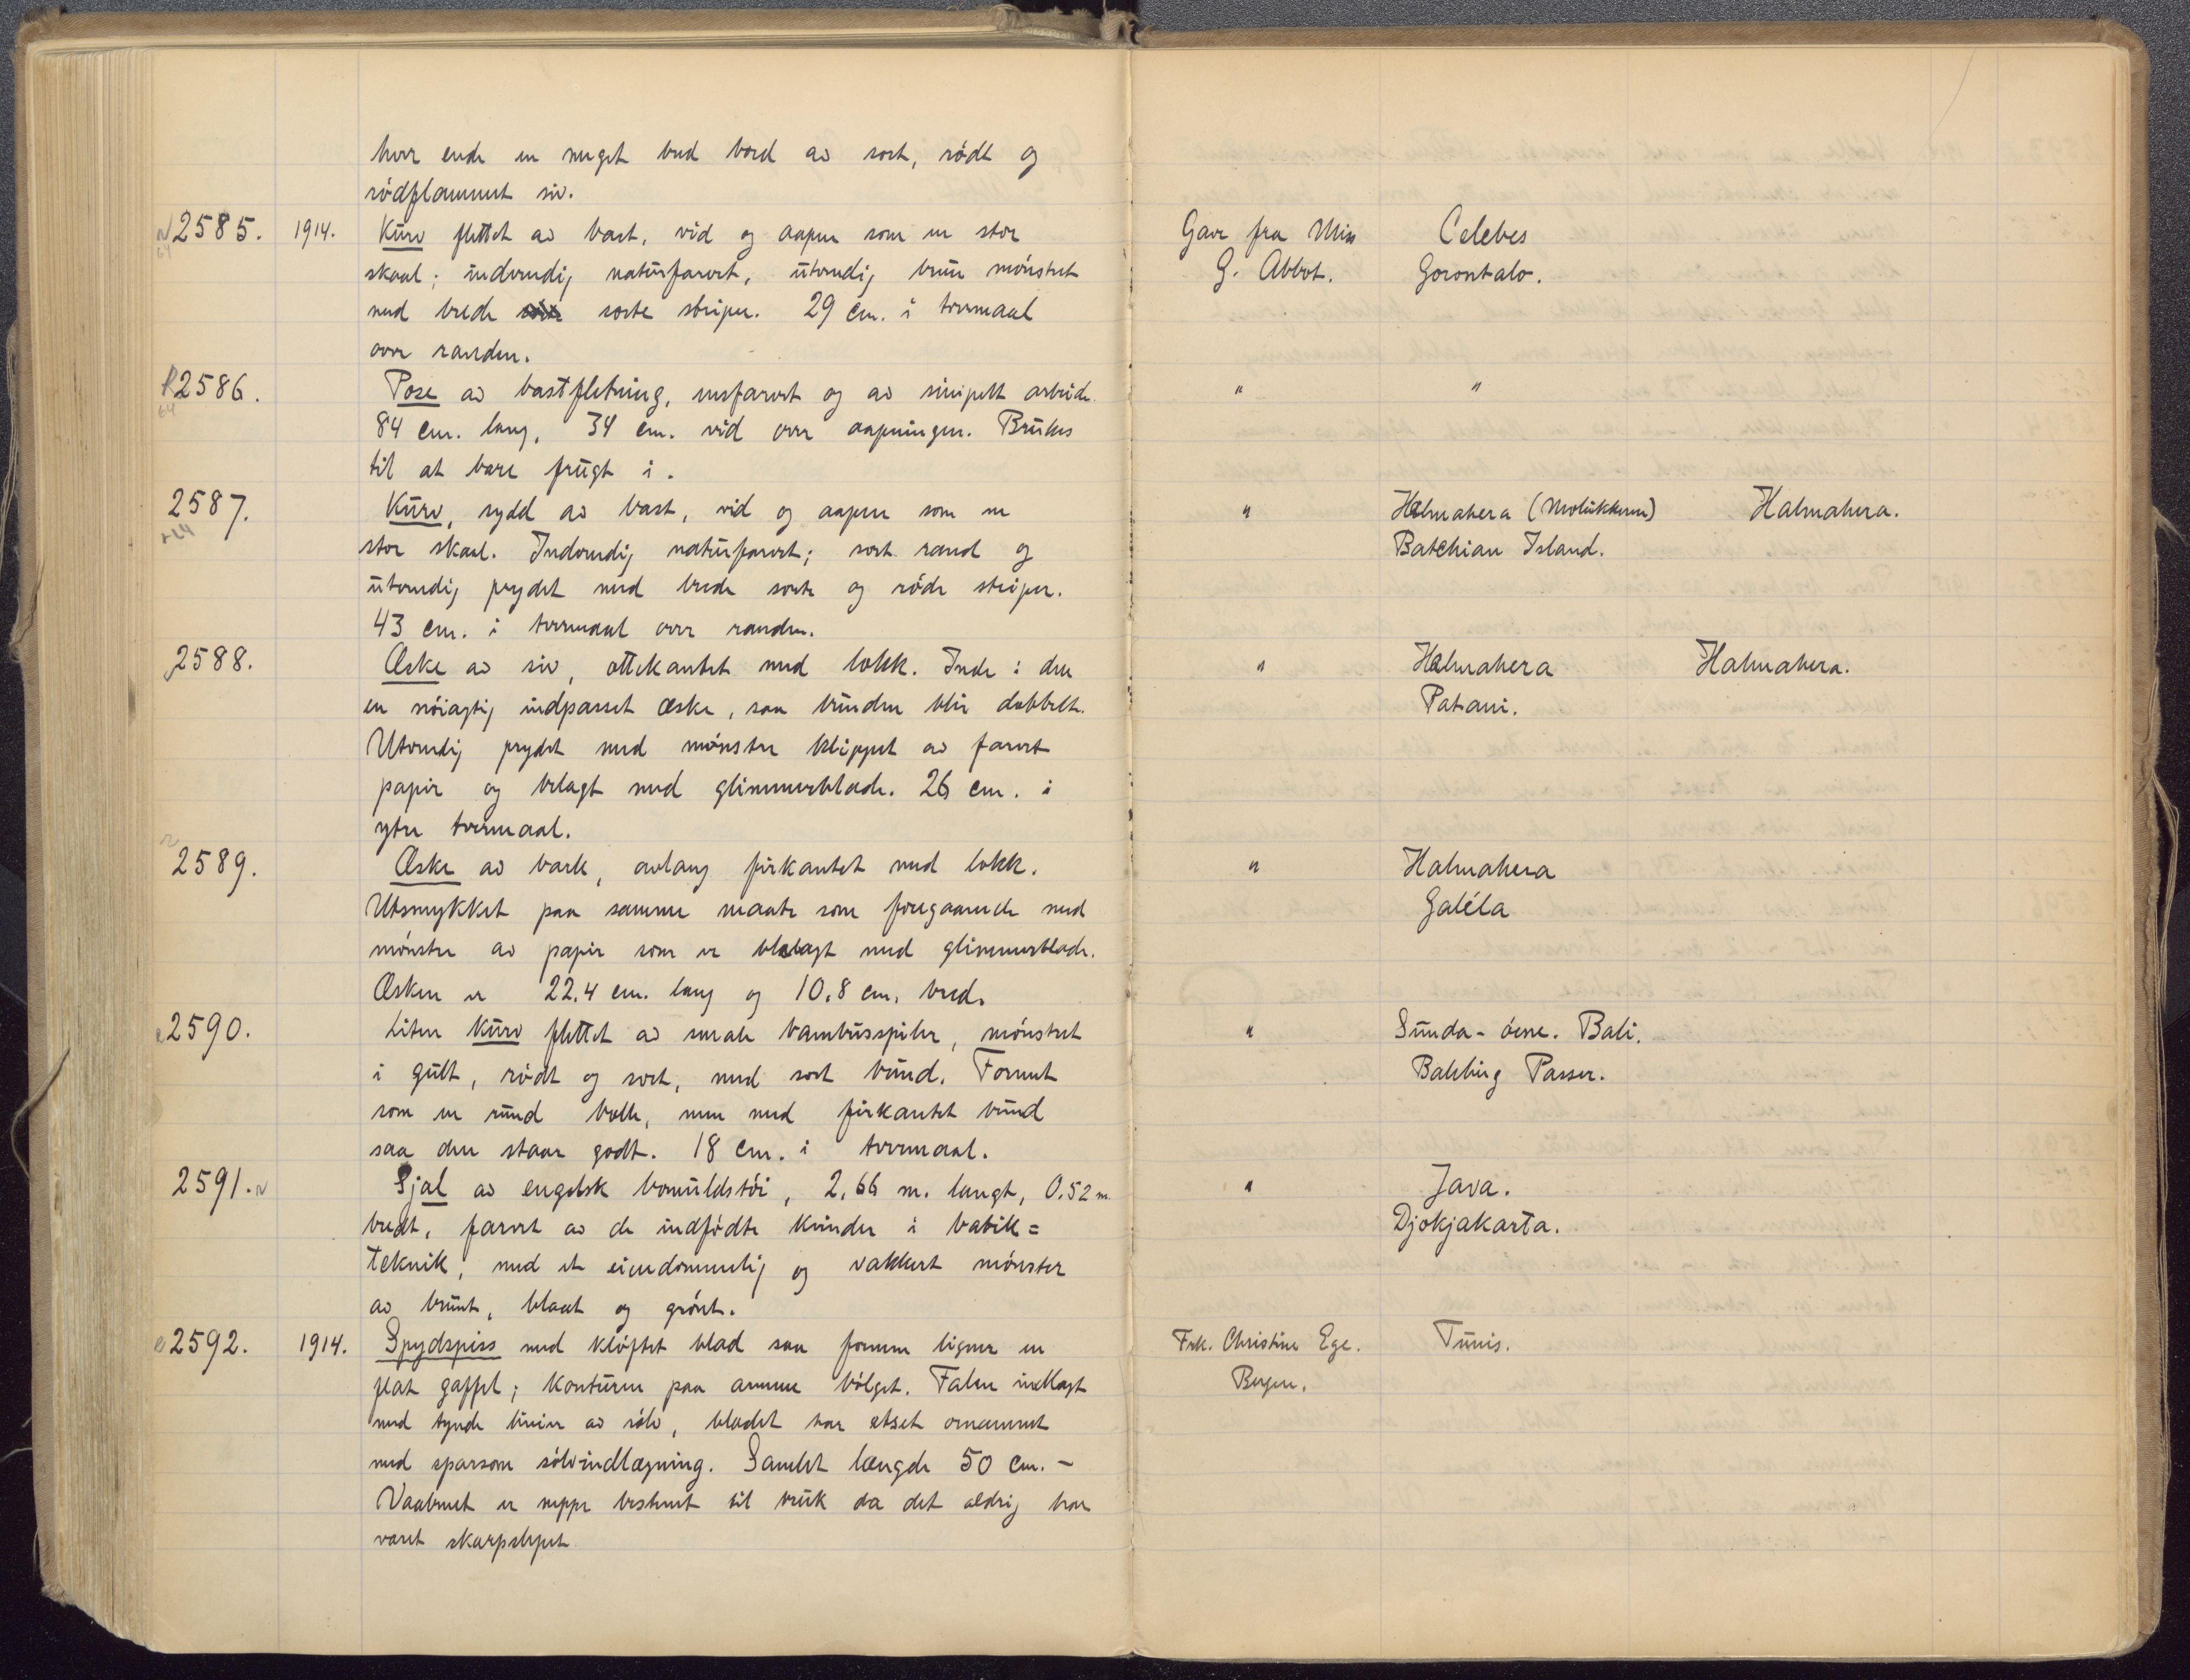 hver ende en meget bred bord av sort, rødt og
rødflammet siv.
2585. 1914. Kurv flettet av bast, vid og aapen som en stor Gave fra Miss Celebes
skaal; indvendig naturfarvet, utvendig brun mønstret G. Abbot. Gorontalo.
med brede sorte striper. 29 cm. i tvermaal
over randen.
2586. Pose av bastfletning, ensfarvet og av simpelt arbeide. " "
64
84 cm. lang, 34 cm. vid over aapningen. Brukes
til at bære frugt i.
2587. Kurv, sydd av bast, vid og aapen som en " Halmahera (Molukkerne) Halmahera.
stor skaal. Indvendig naturfarvet; sort rand og Batchian Island.
utvendig prydet med brede sorte og røde striper.
43 cm. i tvermaal over randen.
2588. Æske av siv, ottekantet med lokk. Inde i den " Halmahera Halmahera.
en nøiagtig indpasset æske, saa bunden blir dobbelt. Patani.
Utvendig prydet med mønstre klippet av farvet
papir og belagt med glimmerblade. 26 cm. i
ytre tvermaal.
2589. Æske av bark, avlang firkantet med lokk. " Halmahera
Utsmykket paa samme maate som foregaaende med Galéla
mønstre av papir som er belagt med glimmerblade.
Æsken er 22.4 cm. lang og 10.8 cm. bred.
2590. Liten kurv flettet av smale bambusspiler, mønstret " Sunda-øerne. Bali.
i gult, rødt og sort, med sort bund. Formet Passer.
som en rund bolle, men med firkantet bund
saa den staar godt. 18 cm. i tvermaal.
2591. Sjal av engelsk bomuldstøi, 2,66 m. langt, 0.52 m. " Java.
bredt, farvet av de indfødte kvinder i batik= Djokjakarta.
teknik, med et eiendommelig og vakkert mønster
av brunt, blaat og grønt.
2592. 1914. Spydspiss med kløftet blad saa formen ligner en Frk. Christine Ege. Tunis.
flat gaffel; konturen paa armene bølget. Falen indlagt Bergen.
med tynde linier av sølv, bladet har etset ornament
med sparsom sølvindlægning. Samlet længde 50 cm. -
Vaabnet er neppe bestemt til bruk da det aldrig har
været skarpslepet